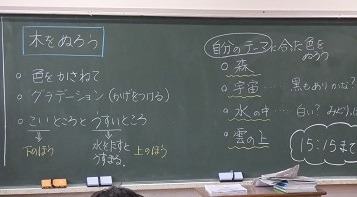 木をぬろう
○ 色をかさねて
○ グラデーション (かげをつける)
○ こいところとうすいところ
下のほう
水をたすとうすまる。
上のほう
自分のテーマに合た色をぬろう
○ 森
○ 宇宙……黒もありかな?
○ 水の中……白い?
○ 雲の上
15:15まで